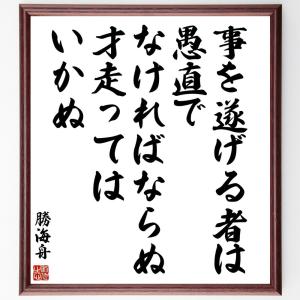 事を遂げる者は
愚直で
なければならぬ
才走っては
いかぬ
勝海舟